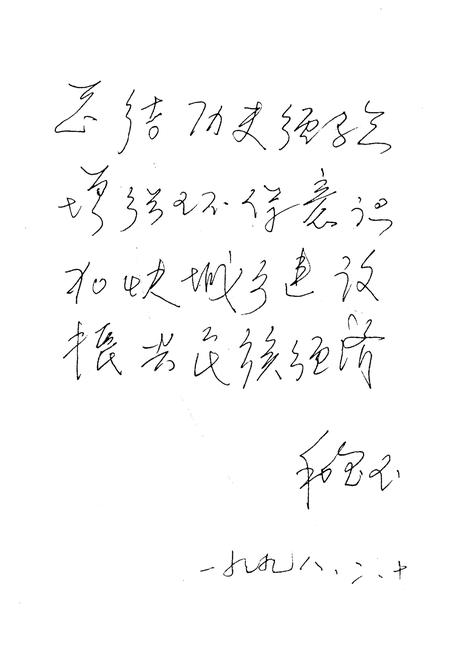 总结历史经验
增强环保意识
加快城乡建设
振兴民族经济
一九九八、二、十